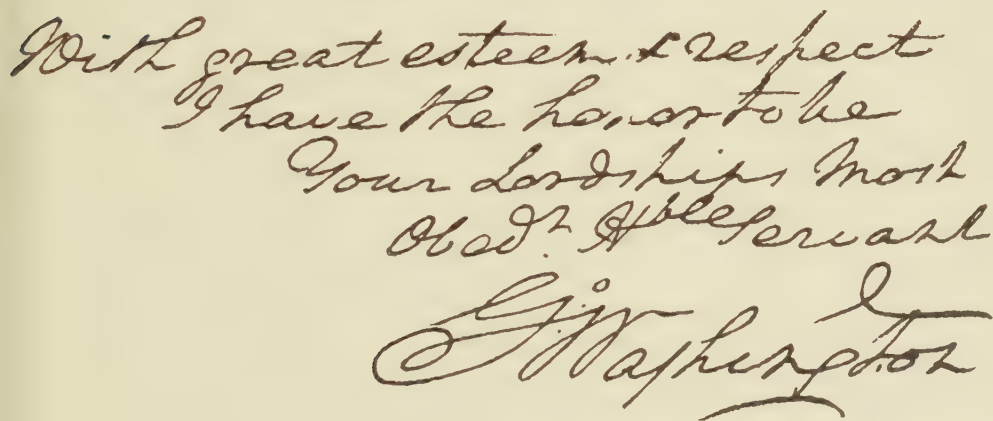 With great esteem & respect
I have the honor to be
Your Lordships Most
Obedt Hble Servant
Go: Washington